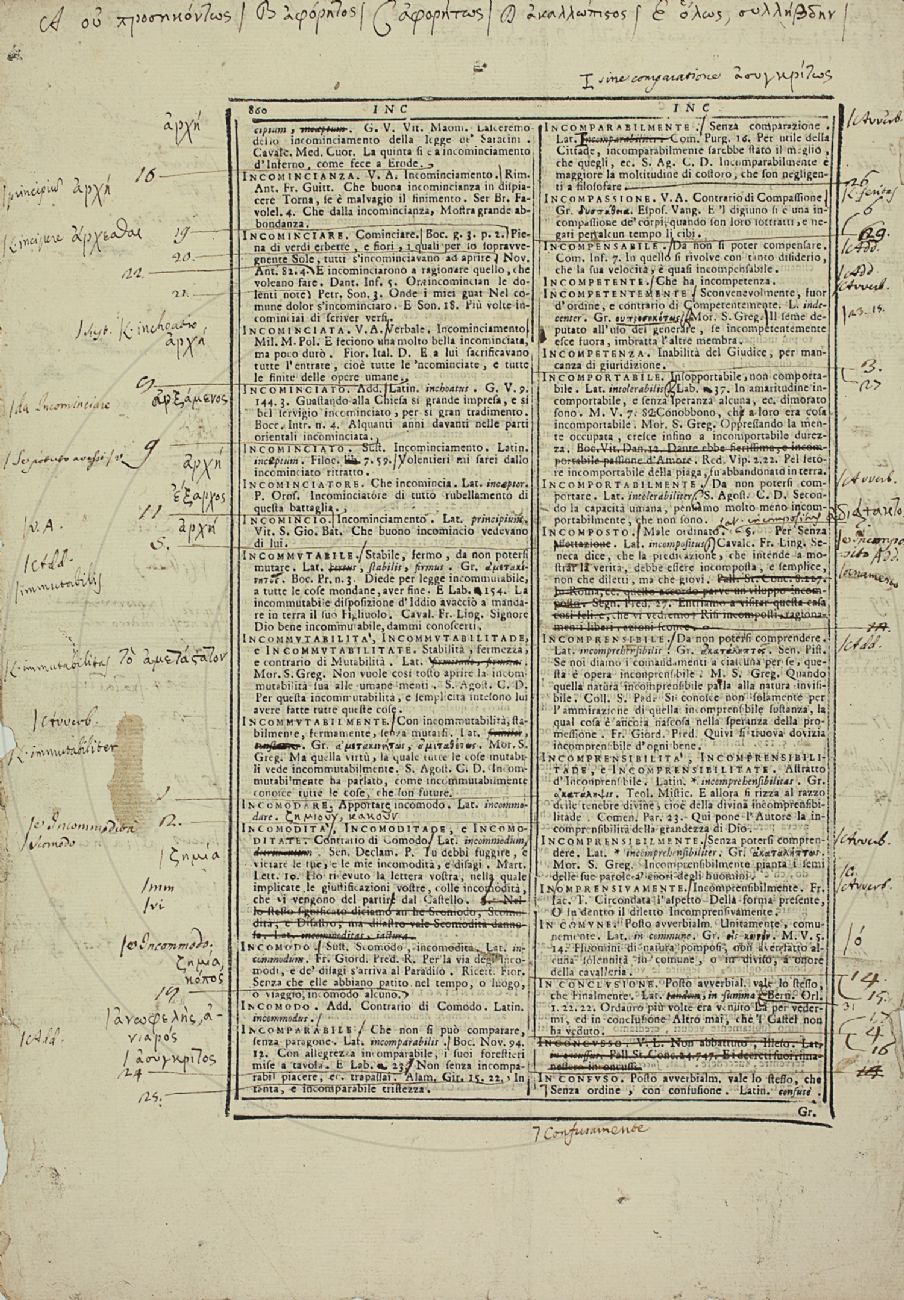 A οὐ προσηκόντως / B ἀφόρητος / C ἀφορήτως / D ἀκαλλώπισος / E ὅλως, συλλήβδην /
I sine comparatione ἀσυγκρίτως
860 INC
INC
G. V. Vit. Maom. Lasceremo
dello incominciamento della legge de' Saracini.
Cavalc. Med. Cuor. La quinta si è a incominciamento
d'Inferno, come fece a Erode.
INCOMINCIANZA. V. A. Incominciamento. Rim.
Ant. Fr. Guitt. Che buona incomincianza in dispia-
cere Torna, se è malvagio il finimento. Ser Br. Fa-
volel. 4. Che dalla incomincianza, Mostra grande ab-
bondanza.
INCOMINCIARE. Cominciare. Boc. g. 3. p. 2. Pie-
na di verdi erbette, e fiori, i quali per lo sopravve-
gnente Sole, tutti s'incominciavano ad aprire. Nov.
Ant. 82. 4. E incominciarono a ragionare quello, che
voleano fare. Dant. Inf. 5. Ora incomincian le do-
lenti note. Petr. Son. 3. Onde i miei guai Nel co-
mune dolor s'incominciaro. E Son. 18. Più volte in-
cominciai di scriver versi.
INCOMINCIATA. V. A. Verbale. Incominciamento.
Mil. M. Pol. E feciono una molto bella incominciata,
ma poco durò. Fior. Ital. D. E a lui sacrificavano
tutte l'entrate, cioè tutte le 'ncominciate, e tutte
le finite delle opere umane.
INCOMINCIATO. Add. Latin. inchoatus. G. V. 9.
144. 3. Guastando alla Chiesa sì grande impresa, e sì
bel servigio incominciato, per sì gran tradimento.
Bocc. Intr. n. 4. Alquanti anni davanti nelle parti
orientali incominciata.
INCOMINCIATO. Sust. Incominciamento. Latin.
inceptum. Filoc. 7. 59. Volentieri mi sarei dallo
incominciato ritratto.
INCOMINCIATORE. Che incomincia. Lat. inceptor.
P. Oros. Incominciatore di tutto rubellamento di
questa battaglia.
INCOMINCIO. Incominciamento. Lat. principium.
Vit. S. Gio. Bat. Che buono incomincio vedevano
di lui.
INCOMMUTABILE. Stabile, fermo, da non potersi
mutare. Lat. stabilis, firmus. Gr. ἀμετακί-
νητος. Boc. Pr. n. 3. Diede per legge incommutabile,
a tutte le cose mondane, aver fine. E Lab. 154. La
incommutabile disposizione d'Iddio avacciò a manda-
re in terra il suo Figliuolo. Caval. Fr. Ling. Signore
Dio bene incommutabile, dammi conoscerti.
INCOMMUTABILITA', INCOMMUTABILITADE,
e INCOMMUTABILITATE. Stabilità, fermezza,
e contrario di Mutabilità. Lat. firmitudo, firmitas.
Mor. S. Greg. Non vuole così tosto aprire la incom-
mutabilità sua alle umane menti. S. Agost. C. D.
Per questa incommutabilità, e semplicità intesono lui
avere fatte tutte queste cose.
INCOMMUTABILMENTE. Con incommutabilità, sta-
bilmente, fermamente, senza mutarsi. Lat. firmiter,
Gr. ἀμετακινήτως, ἀμεταθέτως. Mor. S.
Greg. Ma quella virtù, la quale tutte le cose mutabi-
li vede incommutabilmente. S. Agost. C. D. Incom-
mutabilmente ha parlato, come incommutabilmente
conosce tutte le cose, che son future.
INCOMODARE. Apportare incomodo. Lat. incommo-
dare. ζημιοῦν, κακοῦν
INCOMODITA', INCOMODITADE, e INCOMO-
DITATE. Contrario di Comodo. Lat. incommodum,
detrimentum. Sen. Declam. P. Tu debbi fuggire, e
vietare le tue, e le mie incomodità, e disagi. Mart.
Lett. 10. Ho ricevuto la lettera vostra, nella quale
implicate le giustificazioni vostre, colle incomodità,
che vi vengono del partire dal Castello. §. Nel-
lo stesso significato diciamo anche Scomodo, Scomo-
dità, e Disastro; ma disastro vale Scomodità danno-
sa. Lat. incommoditas, iactura.
INCOMODO. Sust. Scomodo, incomodità. Lat. in-
commodum. Fr. Giord. Pred. R. Per la via degl'inco-
modi, e de' disagi s'arriva al Paradiso. Ricett. Fior.
Senza che elle abbiano patito nel tempo, o luogo,
o viaggio, incomodo alcuno.
INCOMODO. Add. Contrario di Comodo. Latin.
incommodus.
INCOMPARABILE. Che non si può comparare,
senza paragone. Lat. incomparabilis. Boc. Nov. 94.
12. Con allegrezza incomparabile, i suoi forestieri
mise a tavola. E Lab. 23. Non senza incompa-
rabil piacere, ec. trapassai. Alam. Gir. 15. 22. In
tanta, e incomparabile tristezza.
INCOMPARABILMENTE. Senza comparazione.
Lat. incomparabiliter. Com. Purg. 16. Per utile della
Cittade, incomparabilmente sarebbe stato il meglio,
che quegli, ec. S. Ag. C. D. Incomparabilmente è
maggiore la moltitudine di costoro, che son negligen-
ti a filosofare.
INCOMPASSIONE. V. A. Contrario di Compassione.
Gr. δυσπάθεια. Espos. Vang. E 'l digiuno si è una in-
compassione de' corpi, quando son loro sottratti, e ne-
gati per alcun tempo li cibi.
INCOMPENSABILE. Da non si poter compensare.
Com. Inf. 7. In quello si rivolve con tanto disiderio,
che la sua velocità, è quasi incompensabile.
INCOMPETENTE. Che ha incompetenza.
INCOMPETENTEMENTE. Sconvenevolmente, fuor
d'ordine, e contrario di Competentemente. L. inde-
center. Gr. Mor. S. Greg. Il seme de-
putato all'uso del generare, se incompetentemente
esce fuora, imbratta l'altre membra.
INCOMPETENZA. Inabilità del Giudice, per man-
canza di giuridizione.
INCOMPORTABILE. Insopportabile, non comporta-
bile. Lat. intolerabilis. Lab. 37. In amaritudine in-
comportabile, e senza speranza alcuna, ec. dimorato
sono. M. V. 7. 82. Conobbono, che a loro era cosa
incomportabile. Mor. S. Greg. Oppressando la men-
te occupata, cresce infino a incomportabile durez-
za. Boc. Vit. Dan. 12. Dante ebbe fierissima, e incom-
portabile passione d'Amore. Red. Vip. 2. 22. Pel feto-
re incomportabile della piaga, fu abbandonato in terra.
INCOMPORTABILMENTE. Da non potersi com-
portare. Lat. intolerabiliter. S. Agost. C. D. Secon-
do la capacità umana, pensamo molto meno incom-
portabilmente, che non sono.
INCOMPOSTO. Male ordinato. §. Per Senza
affettazione. Lat. incompositus. Cavalc. Fr. Ling. Se-
neca dice, che la predicazione, che intende a mo-
strar la verità, debbe essere incomposta, e semplice,
non che diletti, ma che giovi. Pall. St. Conc. 8. 227.
In Roma, ec. questo accordo parve un viluppo incom-
posto. Segn. Pred. 27. Entriamo a visitar questa casa
così felice, che vi vedremo? Risi incomposti, ragiona-
menti liberi, azioni sconce.
INCOMPRENSIBILE. Da non potersi comprendere.
Lat. incomprehensibilis. Gr. ἀκατάληπτος. Sen. Pist.
Se noi diamo i comandamenti a ciascuna per se, que-
sta è opera incomprensibile. M. S. Greg. Quando
quella natura incomprensibile parla alla natura invisi-
bile. Coll. S. Pad. Si conosce non solamente per
l'ammirazione di quella incomprensibile sustanza, la
qual cosa è ancora nascosa nella speranza della pro-
messione. Fr. Giord. Pred. Quivi si truova dovizia
incomprensibile d'ogni bene.
INCOMPRENSIBILITA', INCOMPRENSIBILI-
TADE, e INCOMPRENSIBILITATE. Astratto
d'Incomprensibile. Latin. * incomprehensibilitas. Gr.
ἀκατάληψις. Teol. Mistic. E allora si rizza al razzo
delle tenebre divine, cioè della divina incomprensibi-
litade. Comen. Par. 23. Qui pone l'Autore la in-
comprensibilità della grandezza di Dio.
INCOMPRENSIBILMENTE. Senza potersi compren-
dere. Lat. * incomprehensibiliter. Gr. ἀκαταλήπτως.
Mor. S. Greg. Incomprensibilmente pianta i semi
delle sue parole a' cuori degli huomini.
INCOMPRENSIVAMENTE. Incomprensibilmente. Fr.
Iac. T. Circondata l'aspetto Della forma presente,
O in dentro il diletto Incomprensivamente.
IN COMUNE. Posto avverbialm. Unitamente, comu-
nemente. Lat. in commune. M. V. 5.
14. Huomini di natura pomposi, non aventasi o al-
cuna solennità in comune, o in diviso, a onore
della cavalleria.
IN CONCLUSIONE. Posto avverbial. vale lo stesso,
che Finalmente. Lat. tandem, in summa. Bern. Orl.
1. 22. 22. Ordauro più volte era venuto Là per veder-
mi, ed in conclusione Altro mai, che 'l Castel non
ha veduto.
INCONCUSSO. V. L. Non abbattuto, Illeso. Lat.
inconcussus. Pall. St. Conc. 24. 747. Ei decreti suoi rima-
nessero inconcussi.
IN CONFUSO. Posto avverbialm. vale lo stesso, che
Senza ordine, con confusione. Latin. confuse.
Gr.
7 Confusamente
ἀρχή
16
principium ἀρχή
ἄρχεσθαι
19
20.
22.
21.
inchoatio
ἀρχή
9
ἀρξάμενος
da Incominciare
9
ἀρχή
ἔξαρχος
11
V. A.
ἀρχή
5.
Add.
immutabilis
immutabilitas τὸ ἀμετάστατον
Avverb.
immutabiliter
12.
Incommodità
ζημία
Incommodo.
ζημία
κόπος
19
ἀνωφελής, ἀ-
νιαρός
Add.
ἀσύγκριτος
24
25.
Avverb.
26
6
29
Add.
Add
Avverb.
3.
27
Avverb.
Add.
Add.
Avverb.
Avverb.
14.
15.
17
4
16